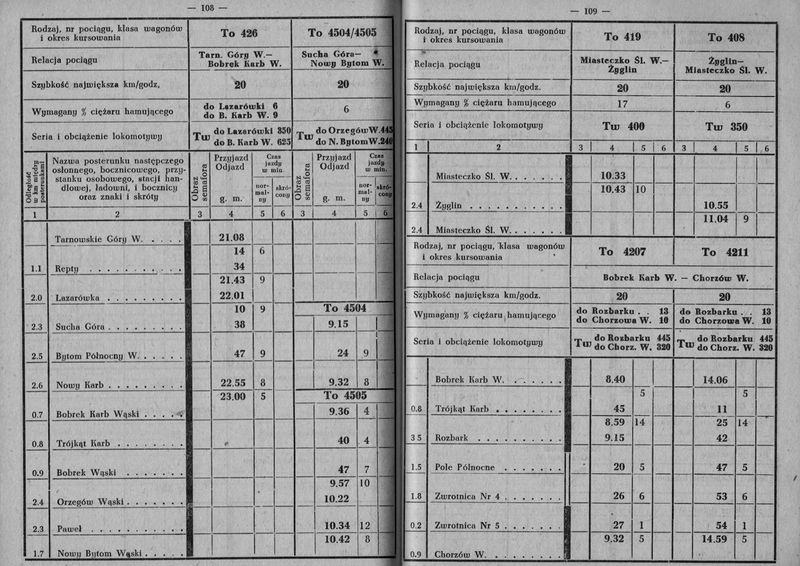 — 108 —
Rodzaj, nr pociągu, klasa wagonów i okres kursowania To 426 To 4504/4505
Relacja pociągu Tarn. Góry W.— Bobrek Karb W. Sucha Góra— Nowy Bytom W.
Szybkość największa km/godz. 20 20
Wymagany % ciężaru hamującego do Lazarówki 6 do B. Karb W. 9 6
Seria i obciążenie lokomotywy Tw do Lazarówki 350 do B. Karb W. 625 Tw do OrzegówW. 445 do N. Bytom W. 240
Odległość w km między posterunkami Nazwa posterunku następczego osłonnego, bocznicowego, przystanku osobowego, stacji handlowej, ładowni, i bocznicy oraz znaki i skróty Obraz semafora Przyjazd Odjazd g. m. Czas jazdy w min. normalny skrócony Obraz semafora Przyjazd Odjazd g. m. Czas jazdy w min. normalny skrócony
1 2 3 4 5 6 3 4 5 6
Tarnowskie Góry W. . . . . 21.08
14 6
1.1 Repty . . . . . . . . . 34
21.43 9
2.0 Lazarówka . . . . . . . . 22.01
10 9 To 4504
2.3 Sucha Góra . . . . . . . . 38 9.15
2.5 Bytom Północny W. . . . . . 47 9 24 9
2.6 Nowy Karb . . . . . . . . 22.55 8 9.32 8
23.00 5 To 4505
0.7 Bobrek Karb Wąski . . . . 9.36 4
0.8 Trójkąt Karb . . . . . . . 40 4
0.9 Bobrek Wąski . . . . . . . 47 7
9.57 10
2.4 Orzegów Wąski . . . . . . . 10.22
2.3 Paweł . . . . . . . . . . 10.34 12
10.42 8
1.7 Nowy Bytom Wąski . . . . .
— 109 —
Rodzaj, nr pociągu, klasa wagonów i okres kursowania To 419 To 408
Relacja pociągu Miasteczko Śl. W.— Żyglin Żyglin— Miasteczko Śl. W.
Szybkość największa km/godz. 20 20
Wymagany % ciężaru hamującego 17 6
Seria i obciążenie lokomotywy Tw 400 Tw 350
1 2 3 4 5 6 3 4 5 6
Miasteczko Śl. W. . . . . . . 10.33
10.43 10
2.4 Żyglin . . . . . . . . . . 10.55
11.04 9
2.4 Miasteczko Śl. W. . . . . . .
Rodzaj, nr pociągu, klasa wagonów i okres kursowania To 4207 To 4211
Relacja pociągu Bobrek Karb W. — Chorzów W.
Szybkość największa km/godz. 20 20
Wymagany % ciężaru hamującego do Rozbarku . . 13 do Chorzowa W. 10 do Rozbarku . . 13 do Chorzowa W. 10
Seria i obciążenie lokomotywy Tw do Rozbarku 445 do Chorz. W. 320 Tw do Rozbarku 445 do Chorz. W. 320
Bobrek Karb W. . . . . . . 8.40 14.06
5 5
0.8 Trójkąt Karb . . . . . . . 45 11
8.59 14 25 14
3 5 Rozbark . . . . . . . . . 9.15 42
1.5 Pole Północne . . . . . . 20 5 47 5
1.8 Zwrotnica Nr 4 . . . . . . 26 6 53 6
0.2 Zwrotnica Nr 5 . . . . . . 27 1 54 1
9.32 5 14.59 5
0.9 Chorzów W. . . . . . . . .